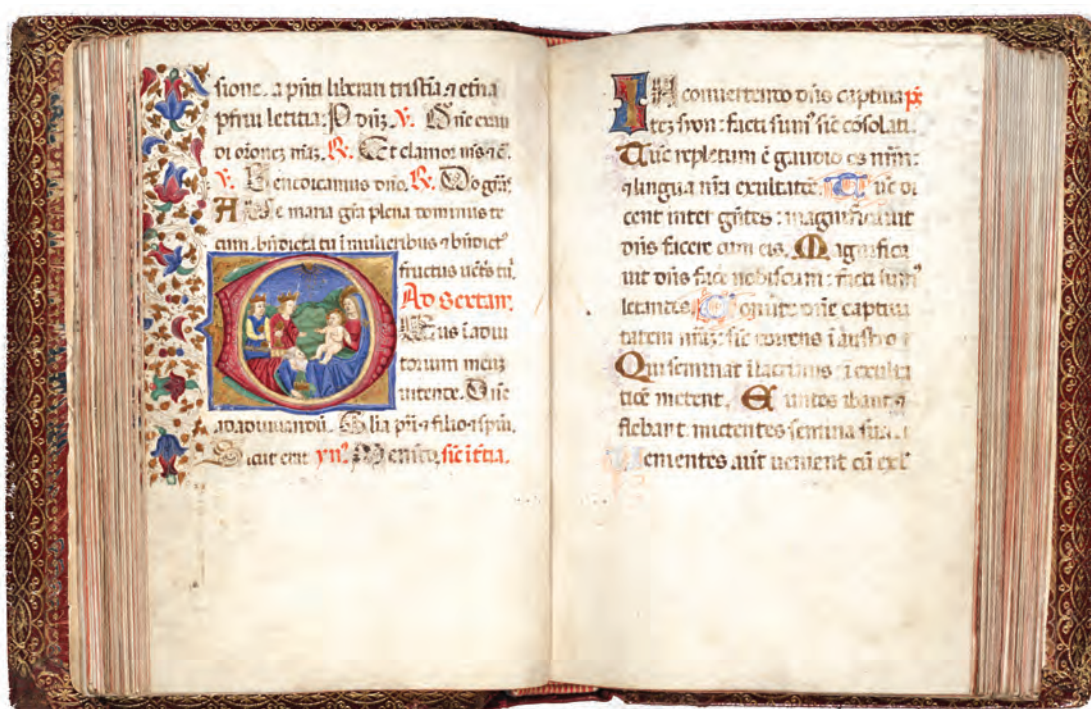 sione. a pñti liberari tristia ⁊ etña
pfrui letitia. P dñz. V. Dñe exau
di orõnez mãz. R. Et clamor ms ⁊c̃.
V. Benedicamus dño. R. Deo grãs
AVe maria grã plena dominus te
cum. bñdicta tu ĩ mulieribus ⁊ bñdict⁹
fructus uẽts tui.
Ad Sextam.
DEus ĩ adiu
torium meuz
intende. Dñe
ad adiuuandũ. Glia pri ⁊ filio ⁊ spiri.
Sicut erat yñ⁹ Memẽto, sic ĩ t̃tia.
IN conuertendo dñs captiua
tez syon: facti sum⁹ sic cõsolati.
Tũc repletum ẽ gaudio os nrm:
⁊ lingua nrã exultatẽe. Tũc di
cent inter gẽtes: magnificauit
dñs facere cum eis. Magnifica
uit dñs face nobiscum: facti sum⁹
letantes. Conuẽte dñe captiui
tatem nrãz: sic torrens ĩ austro
Qui seminãt ĩ lacrimis: ĩ exulta
tiõe metent. Euntes ibant ⁊
flebant: mictentes semina sua.
Uenientes aut̃ uenient cũ exl̃